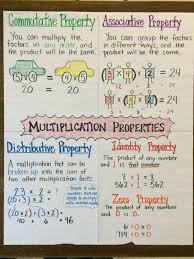 Commutative Property
You can multiply the
factors in any order, and
the product will be the same.
20 = 20
Associative Property
You can group the factors
in different ways, and the
product will be the same.
= 24
= 24
MULTIPLICATION PROPERTIES
Distributive Property
A multiplication fact can be
broken up into the sum of
two other multiplication facts.
23 x 2 = ?
(20 x 2) + (3 x 2)
40 + 6 = 46
Identity Property
The product of any number
and 1 is that number.
8 x 1 = 8
562 x 1 = 562
Zero Property
The product of any number
and 0 is 0.
6 x 0 = 0